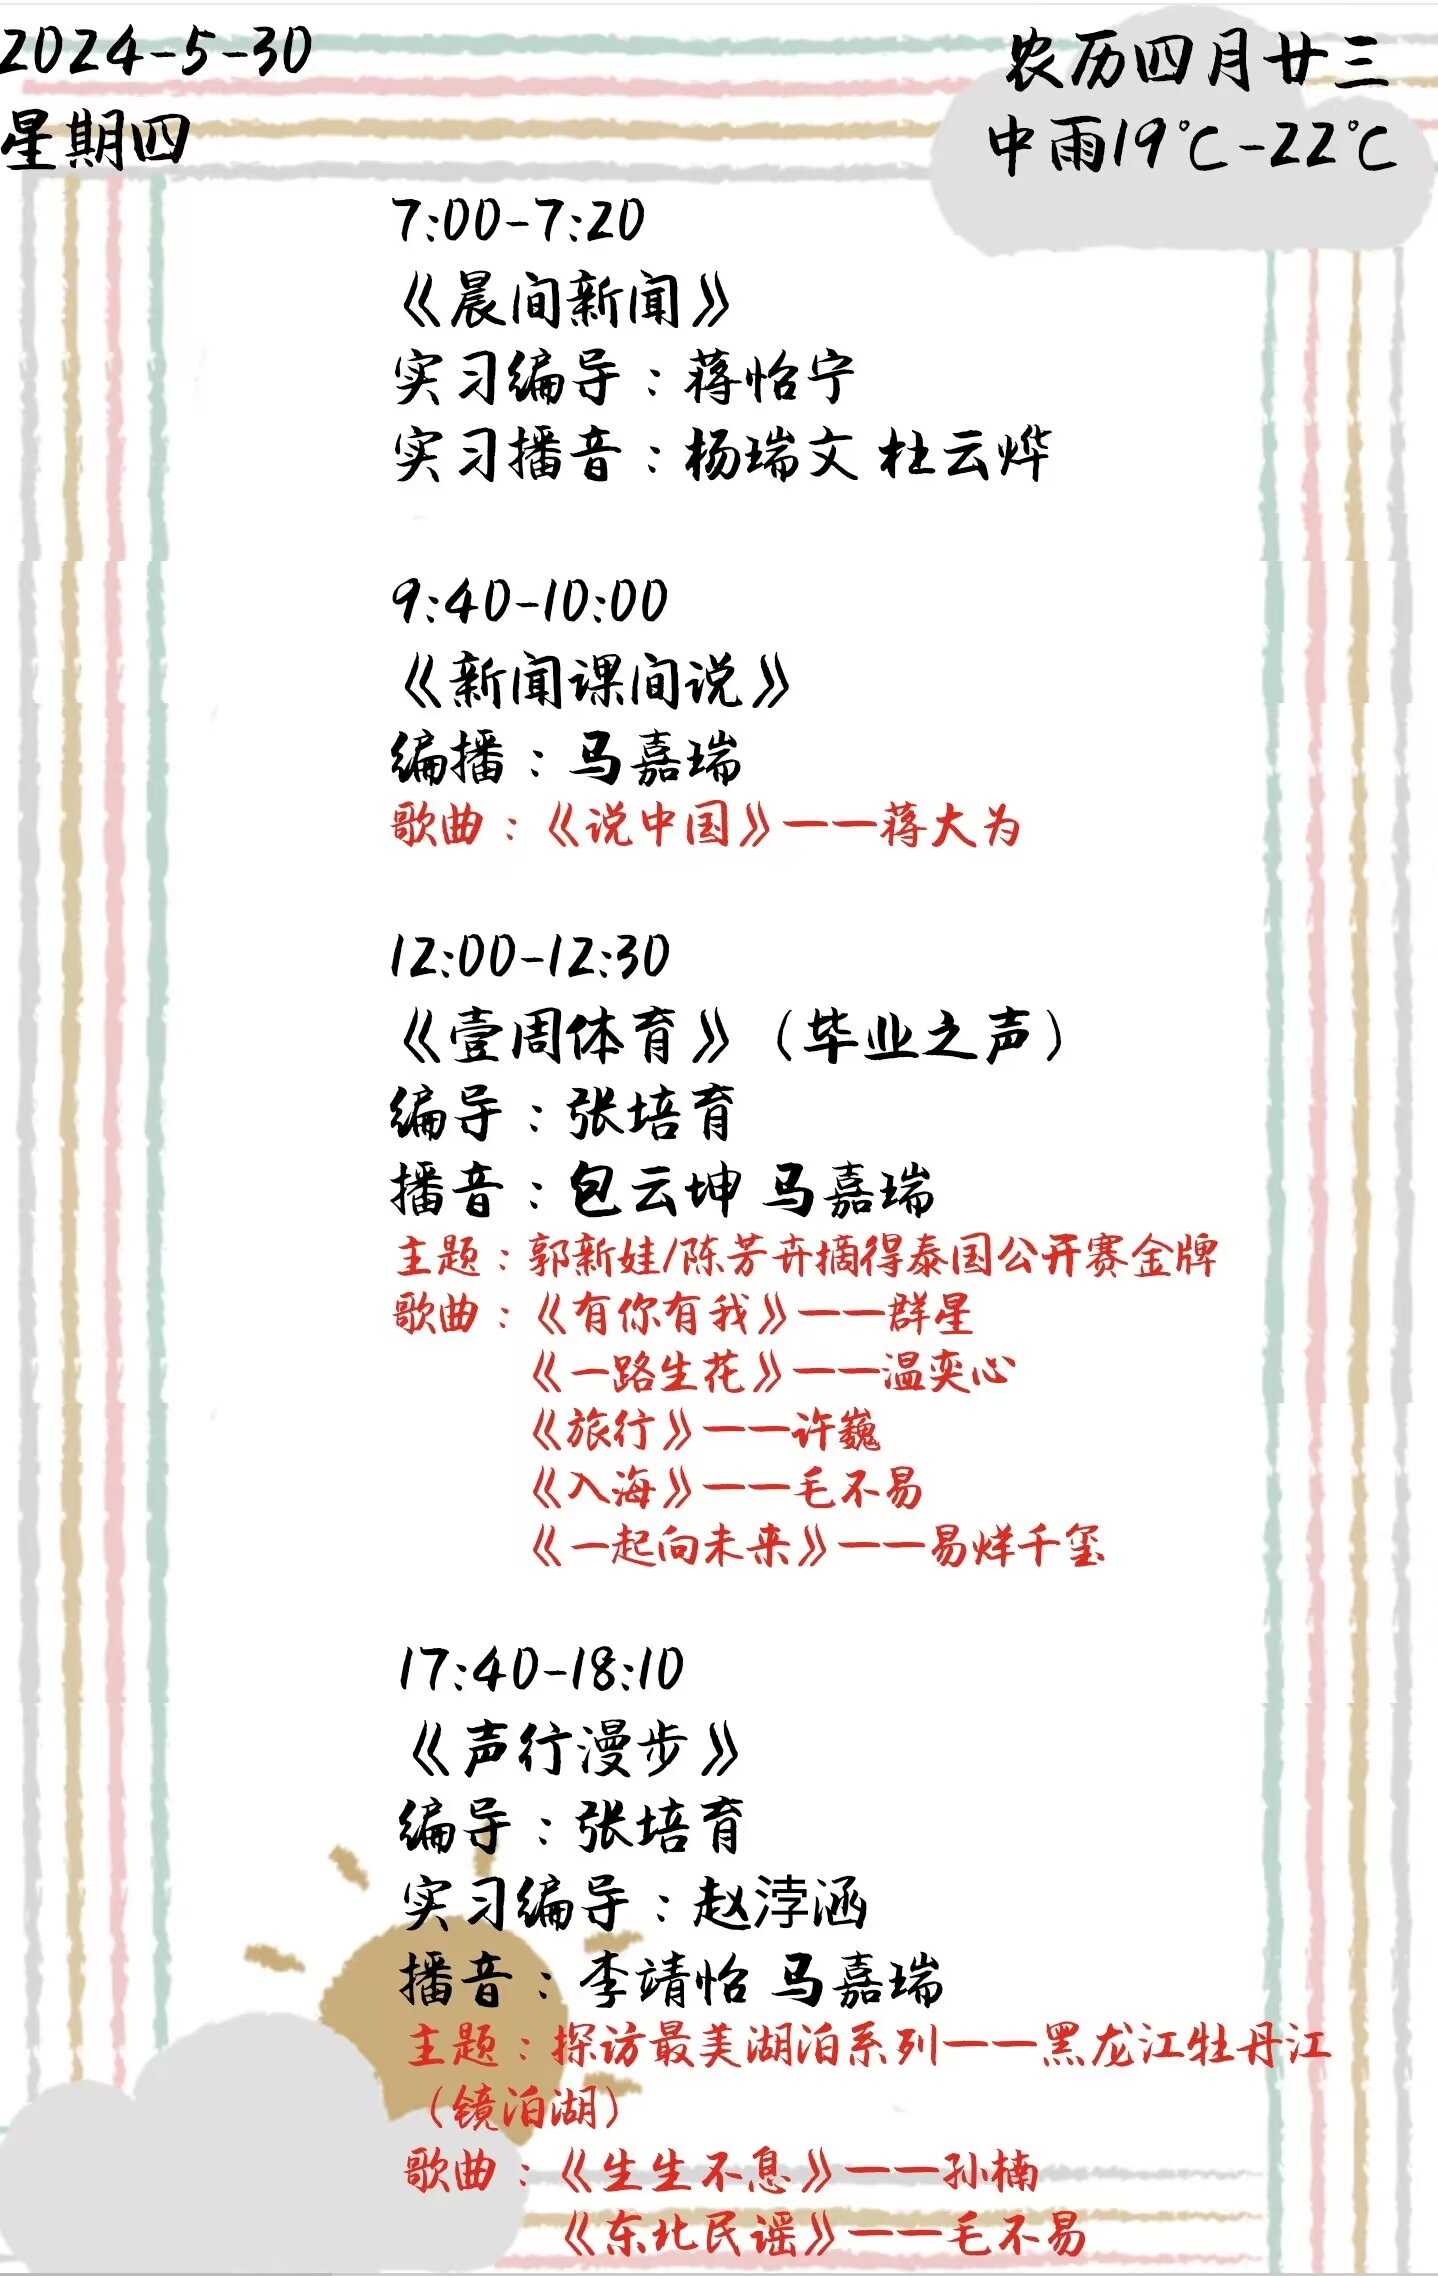 2024-5-30
农历四月廿三
星期四
中雨19℃-22℃
7:00-7:20
《晨间新闻》
实习编导：蒋怡宁
实习播音：杨瑞文 杜云烨
9:40-10:00
《新闻课间说》
编播：马嘉瑞
歌曲：《说中国》——蒋大为
12:00-12:30
《壹周体育》（毕业之声）
编导：张培育
播音：包云坤 马嘉瑞
主题：郭新娃/陈芳卉摘得泰国公开赛金牌
歌曲：《有你有我》——群星
《一路生花》——温奕心
《旅行》——许巍
《入海》——毛不易
《一起向未来》——易烊千玺
17:40-18:10
《声行漫步》
编导：张培育
实习编导：赵浡涵
播音：李靖怡 马嘉瑞
主题：探访最美湖泊系列——黑龙江牡丹江
（镜泊湖）
歌曲：《生生不息》——孙楠
《东北民谣》——毛不易